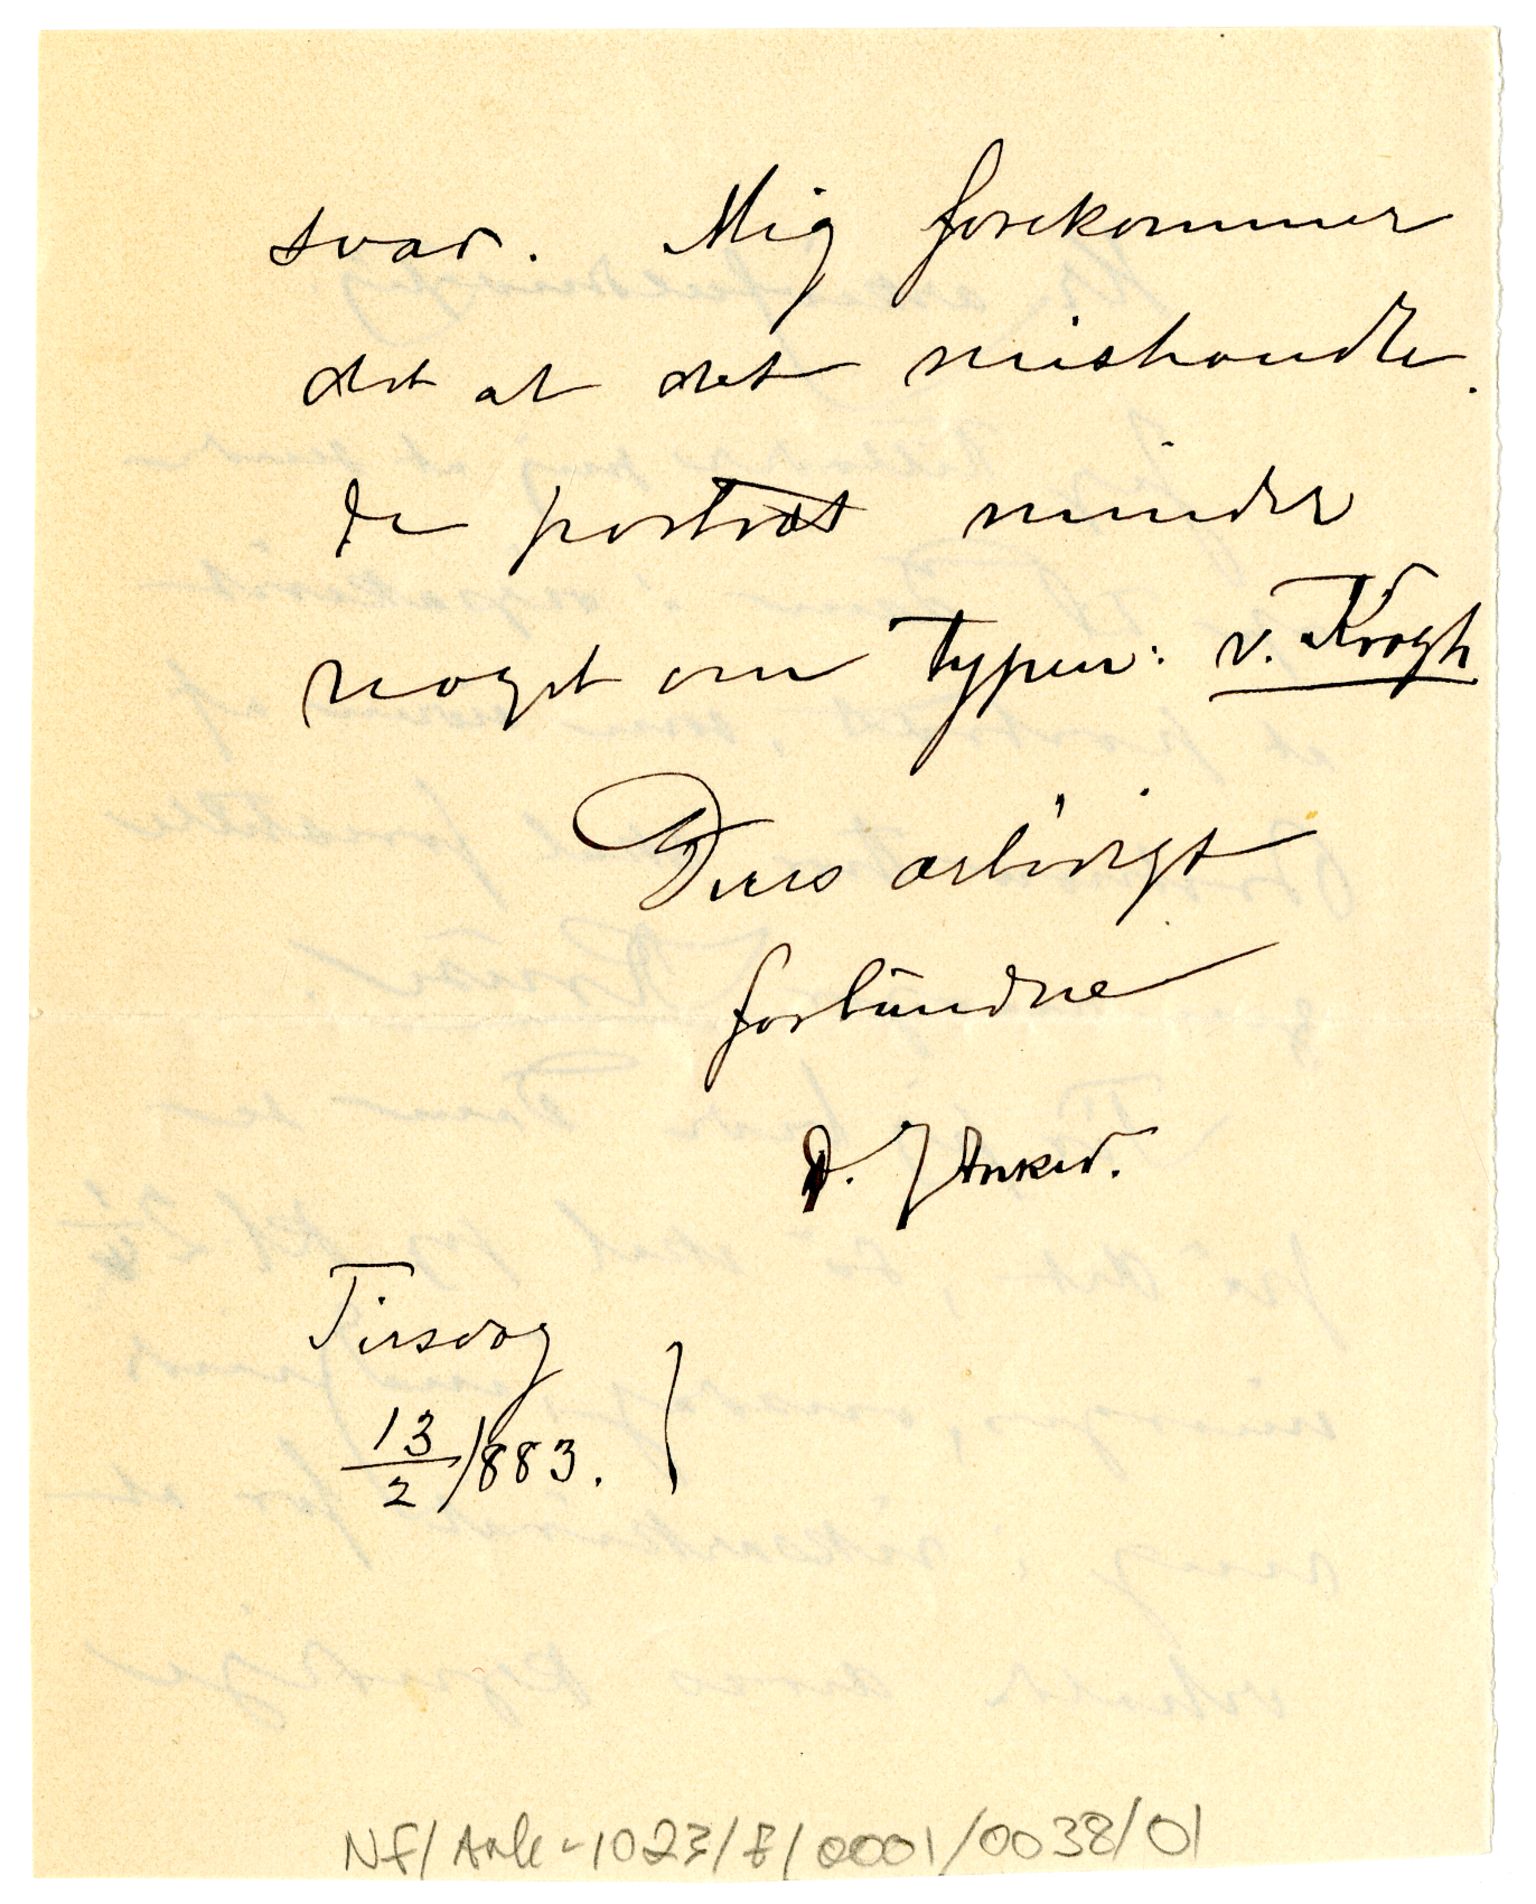 svar. Mig forekommer
det at det mishandle.
de portræt minder
noget om typen: v. Krogh
Deres ærbödigst
forbundne
P. J Anker.
Tirsdag
13/2/1883.
NF/Ark-1023/F/0001/0038/01